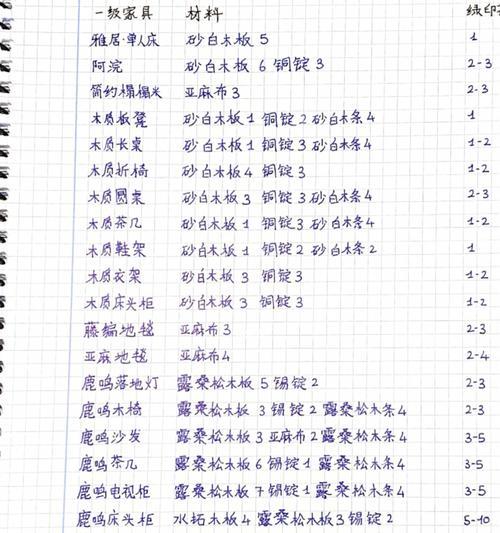 一级家具 材料 绿印花
雅居·单人床 砂白木板 5 1
阿浣 砂白木板 6 铜锭 3 2-3
简约榻榻米 亚麻布 3 2-3
木质板凳 砂白木板 1 铜锭 2 砂白木条 4 1
木质长桌 砂白木板 1 铜锭 3 砂白木条 4 1-2
木质折椅 砂白木板 4 铜锭 3 1-2
木质圆桌 砂白木板 3 铜锭 3 砂白木条 4 2-3
木质茶几 砂白木板 1 铜锭 3 砂白木条 4 1-2
木质鞋架 砂白木板 1 铜锭 2 砂白木条 2 1
木质衣架 砂白木板 3 铜锭 3 1-2
木质床头柜 砂白木板 3 铜锭 3 1-2
藤编地毯 亚麻布 3 2-3
亚麻地毯 亚麻布 4 2-4
鹿鸣落地灯 露桑松木板 5 锡锭 2 2-3
鹿鸣木椅 露桑松木板 3 锡锭 2 露桑松木条 4 2-3
鹿鸣沙发 露桑松木板 3 亚麻布 2 露桑松木条 4 3-5
鹿鸣茶几 露桑松木板 6 锡锭 1 露桑松木条 4 3-5
鹿鸣电视柜 露桑松木板 7 锡锭 1 露桑松木条 4 3-5
鹿鸣床头柜 水拓木板 4 露桑松木板 3 锡锭 2 5-10